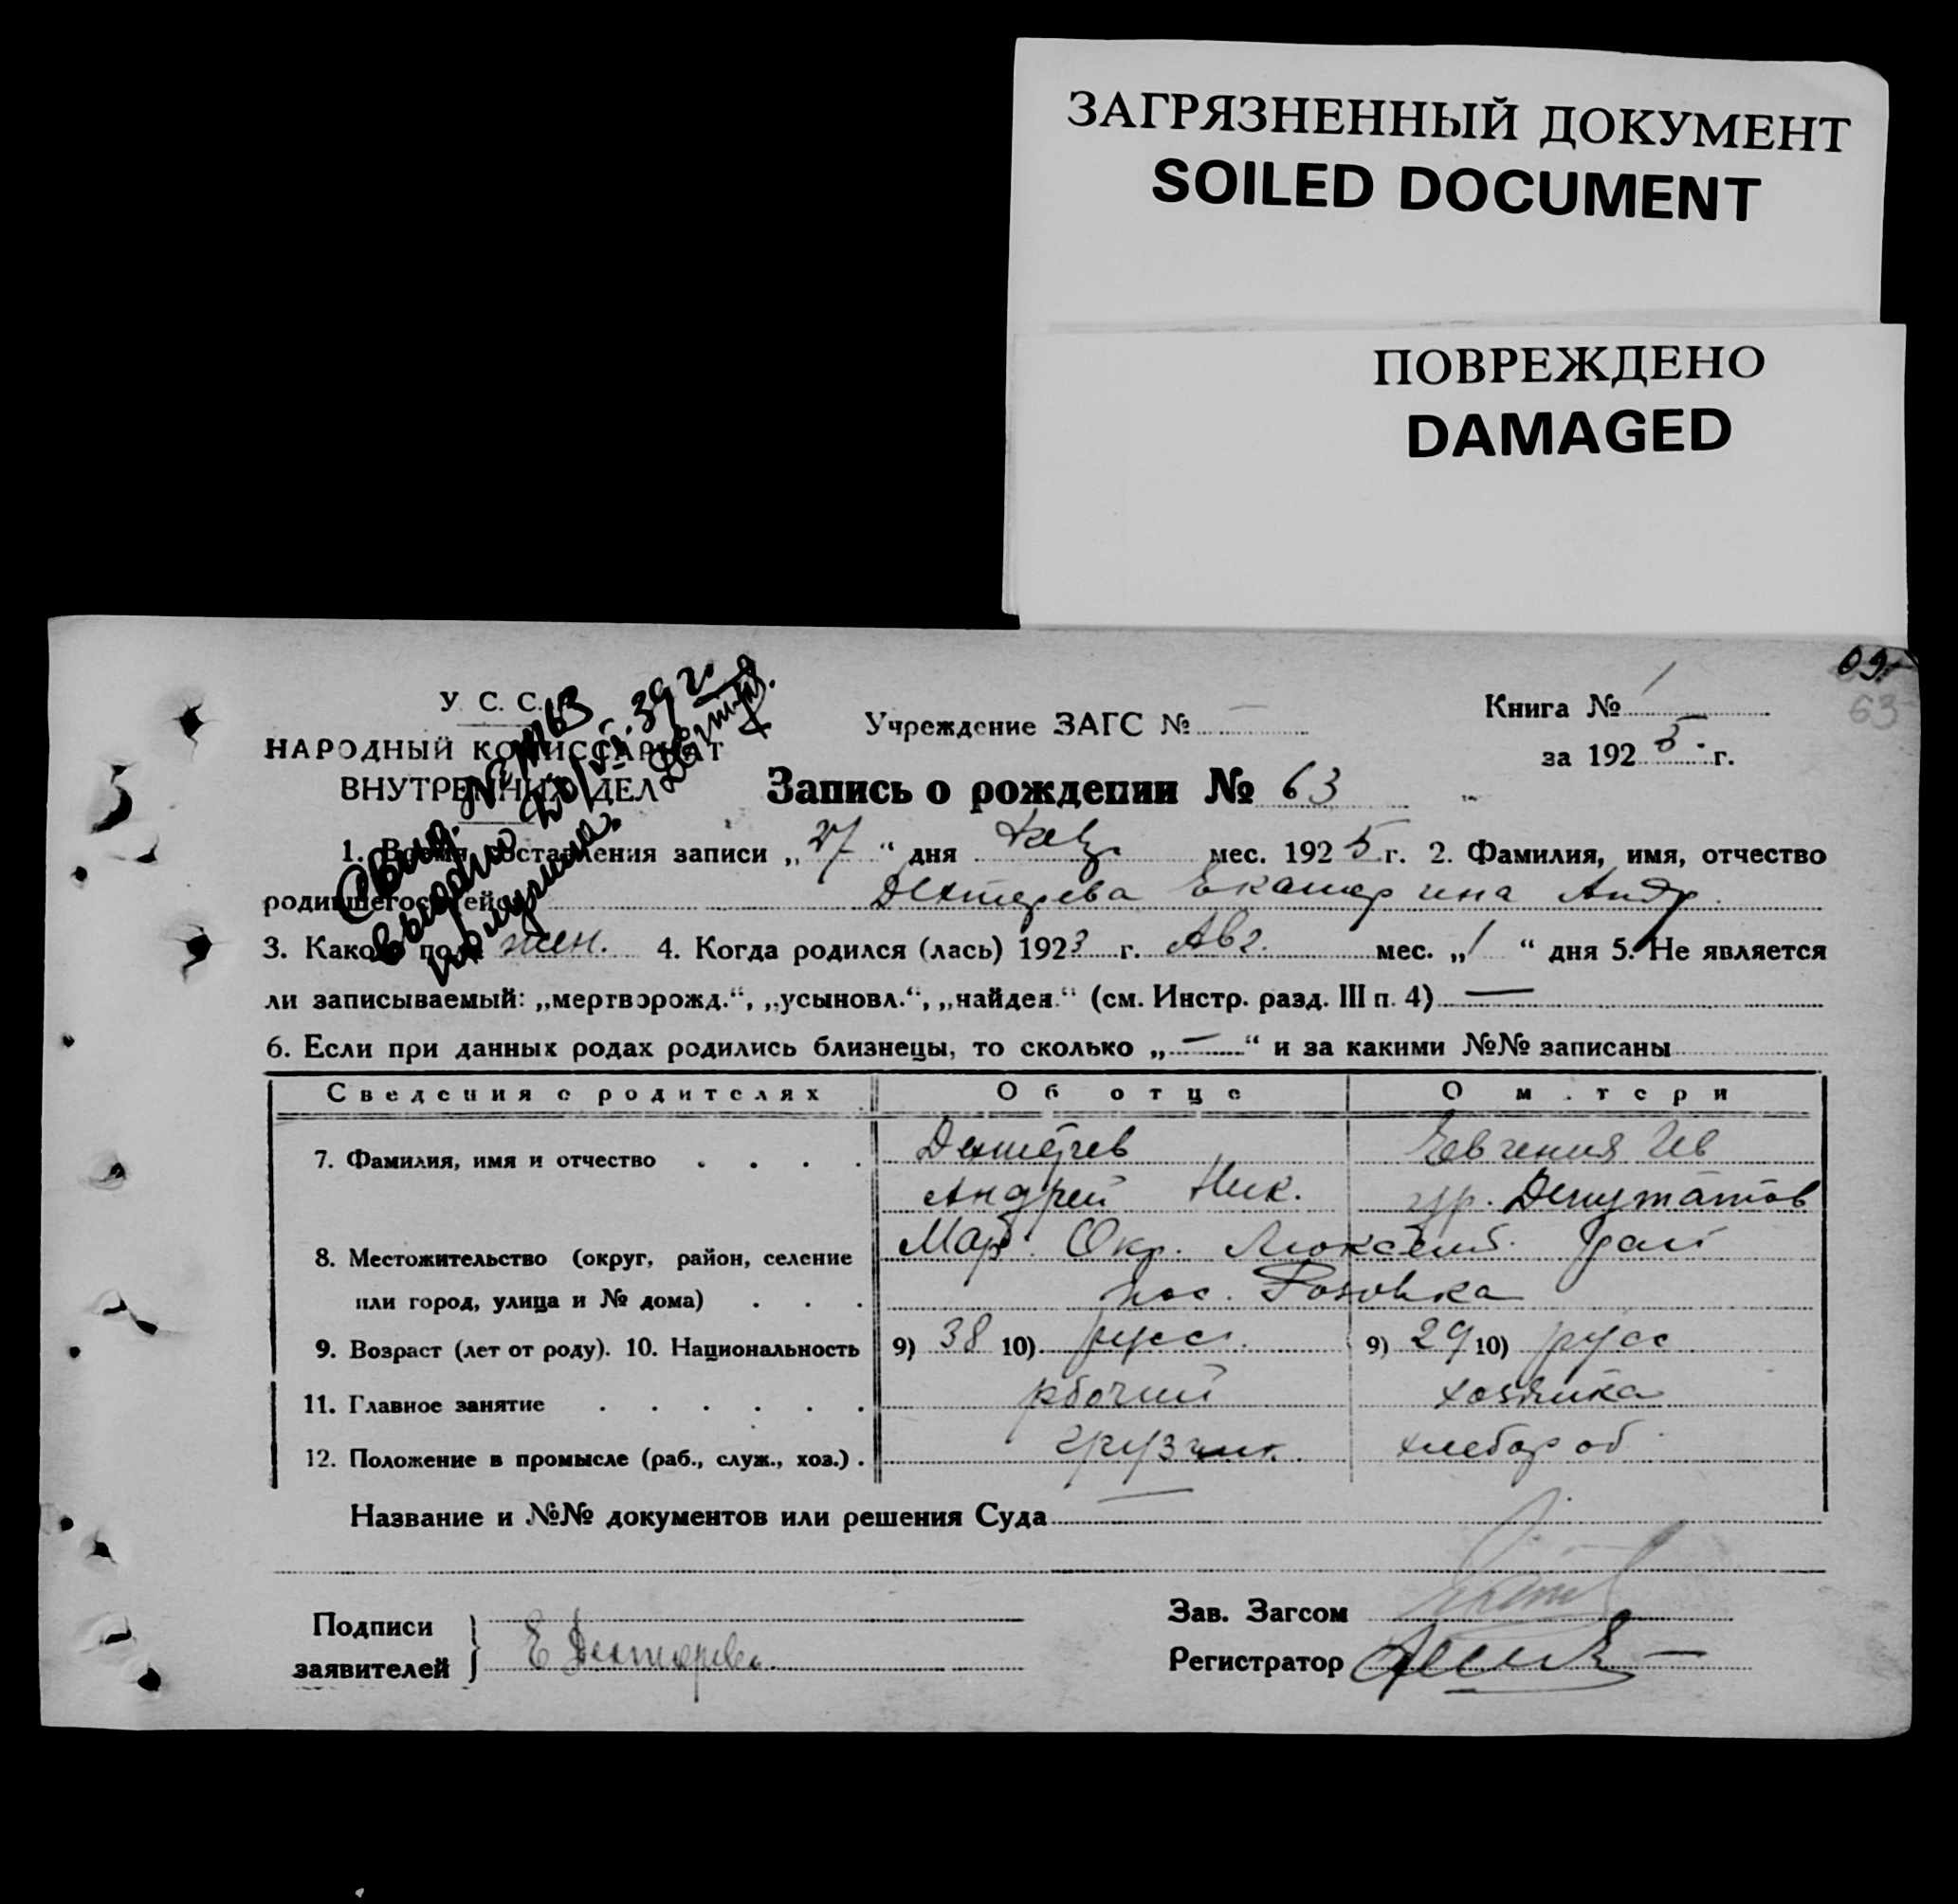 ЗАГРЯЗНЕННЫЙ ДОКУМЕНТ
SOILED DOCUMENT
ПОВРЕЖДЕНО
DAMAGED
63
У. С. С.
НАРОДНЫЙ КОМИССАРИАТ
ВНУТРЕННИХ ДЕЛ
Учреждение ЗАГС №
Книга № 1
за 1925 г.
Запись о рождении № 63
1. Время составления записи „27“ дня мес. 1925 г. 2. Фамилия, имя, отчество
родившегося Дехтерева Екатерина Андр.
3. Какого пола жен. 4. Когда родился (лась) 1923 г. Авг. мес. „1“ дня 5. Не является
ли записываемый: „мертворожд.“, „усыновл.“, „найден.“ (см. Инстр. разд. III п. 4) —
6. Если при данных родах родились близнецы, то сколько „—“ и за какими №№ записаны
Сведения о родителях Об отце О матери
7. Фамилия, имя и отчество Дехтерев Евгения Ив
Андрей Ник. гр. Депутатов
8. Местожительство (округ, район, селение Мар. Окр. Люксемб. рай
или город, улица и № дома) пос. Розовка
9. Возраст (лет от роду). 10. Национальность 9) 38 10) русс. 9) 29 10) русс
11. Главное занятие рбочий хозяйка
12. Положение в промысле (раб., служ., хоз.) грузчик. хлебороб
Название и №№ документов или решения Суда —
Подписи
заявителей Е Дехтерева
Зав. Загсом
Регистратор